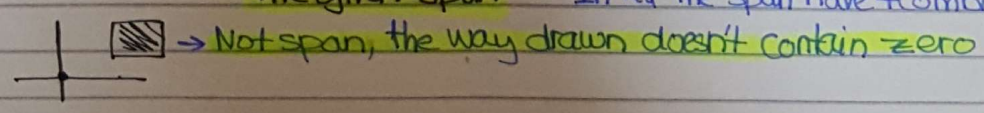 → Not span, the way drawn doesn't contain zero